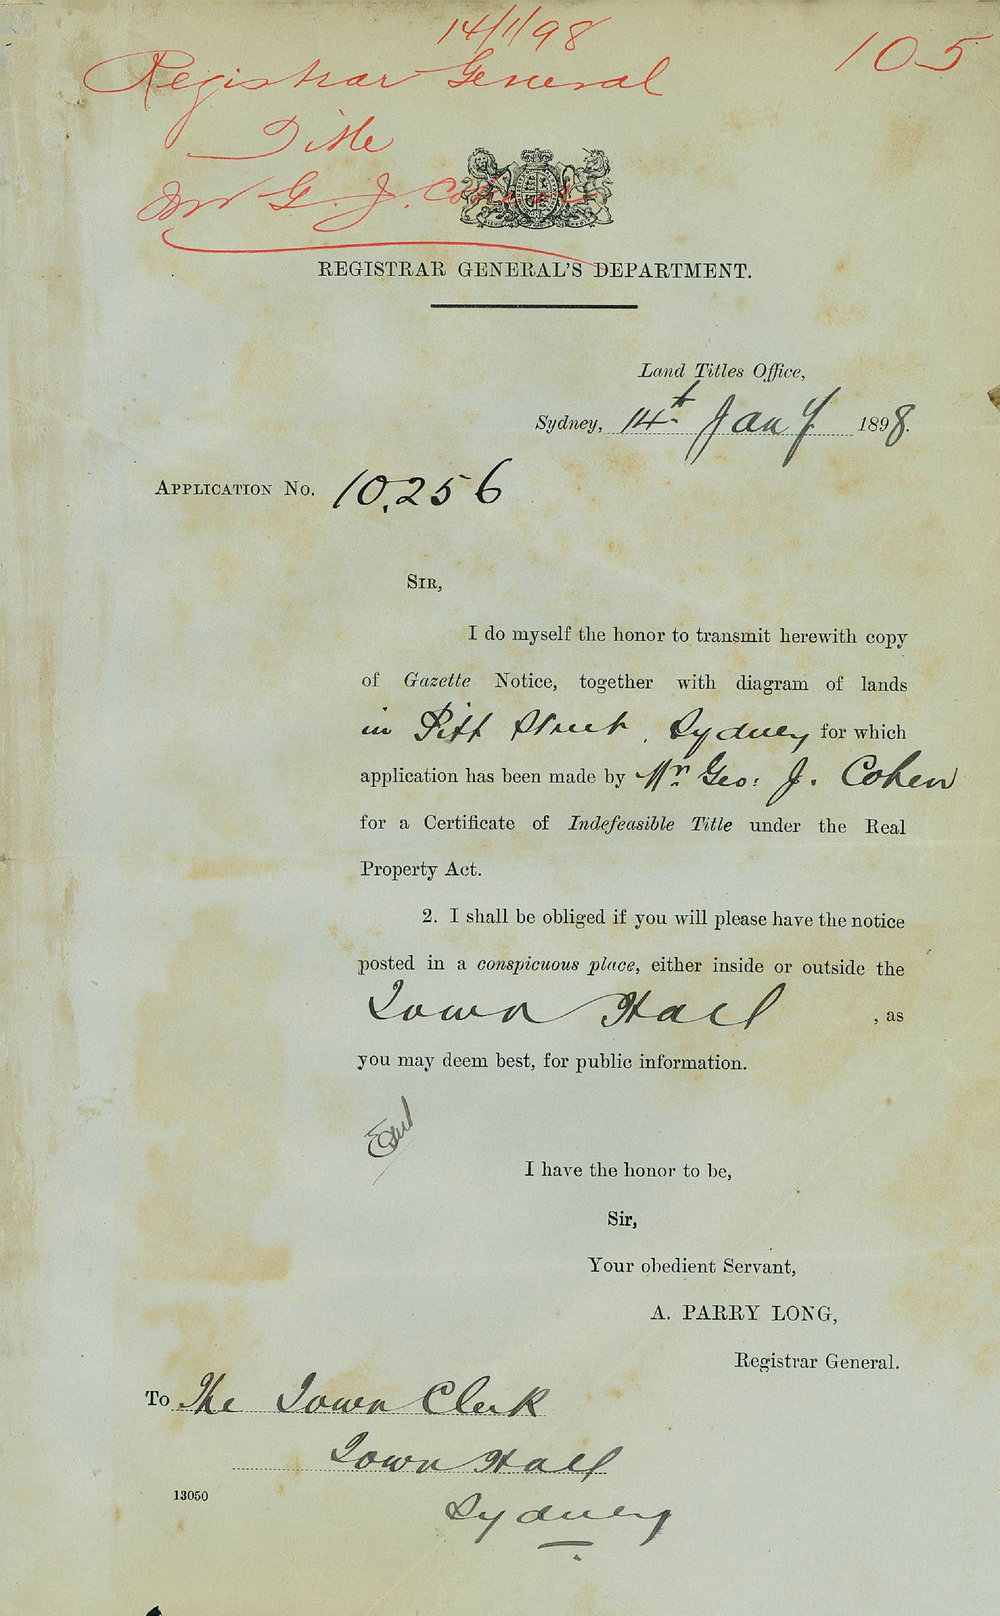 14/1/98
105
Registrar General
Title
Mr G. J. Cohen
REGISTRAR GENERAL'S DEPARTMENT.
Land Titles Office,
Sydney, 14th Jany 1898.
APPLICATION No. 10,256
SIR,
I do myself the honor to transmit herewith copy
of Gazette Notice, together with diagram of lands
in Pitt Street, Sydney for which
application has been made by Mr. Geo: J. Cohen
for a Certificate of Indefeasible Title under the Real
Property Act.
2. I shall be obliged if you will please have the notice
posted in a conspicuous place, either inside or outside the
Town Hall , as
you may deem best, for public information.
I have the honor to be,
Sir,
Your obedient Servant,
A. PARRY LONG,
Registrar General.
To The Town Clerk
Town Hall
Sydney
13050